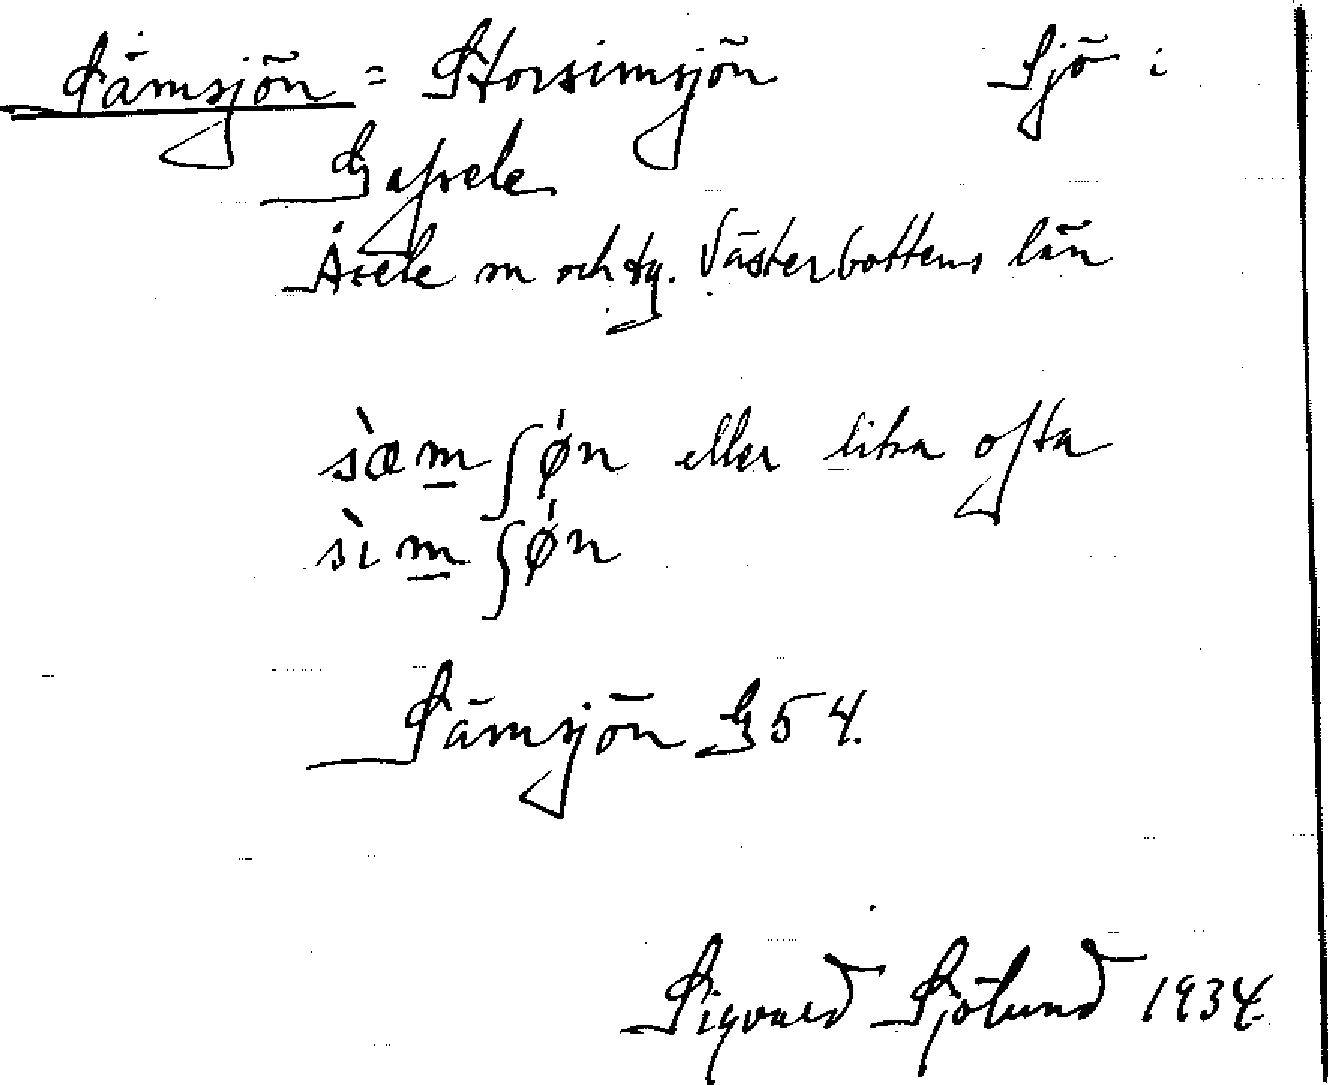 Sämsjön = Storsimsjön Sjö i
Gafsele
Åsele sn och tg. Västerbottens län
sæ̀mʃǿn eller lika ofta
sìmʃǿn
Sämsjön G 54.
Sigvard Sjölund 1934